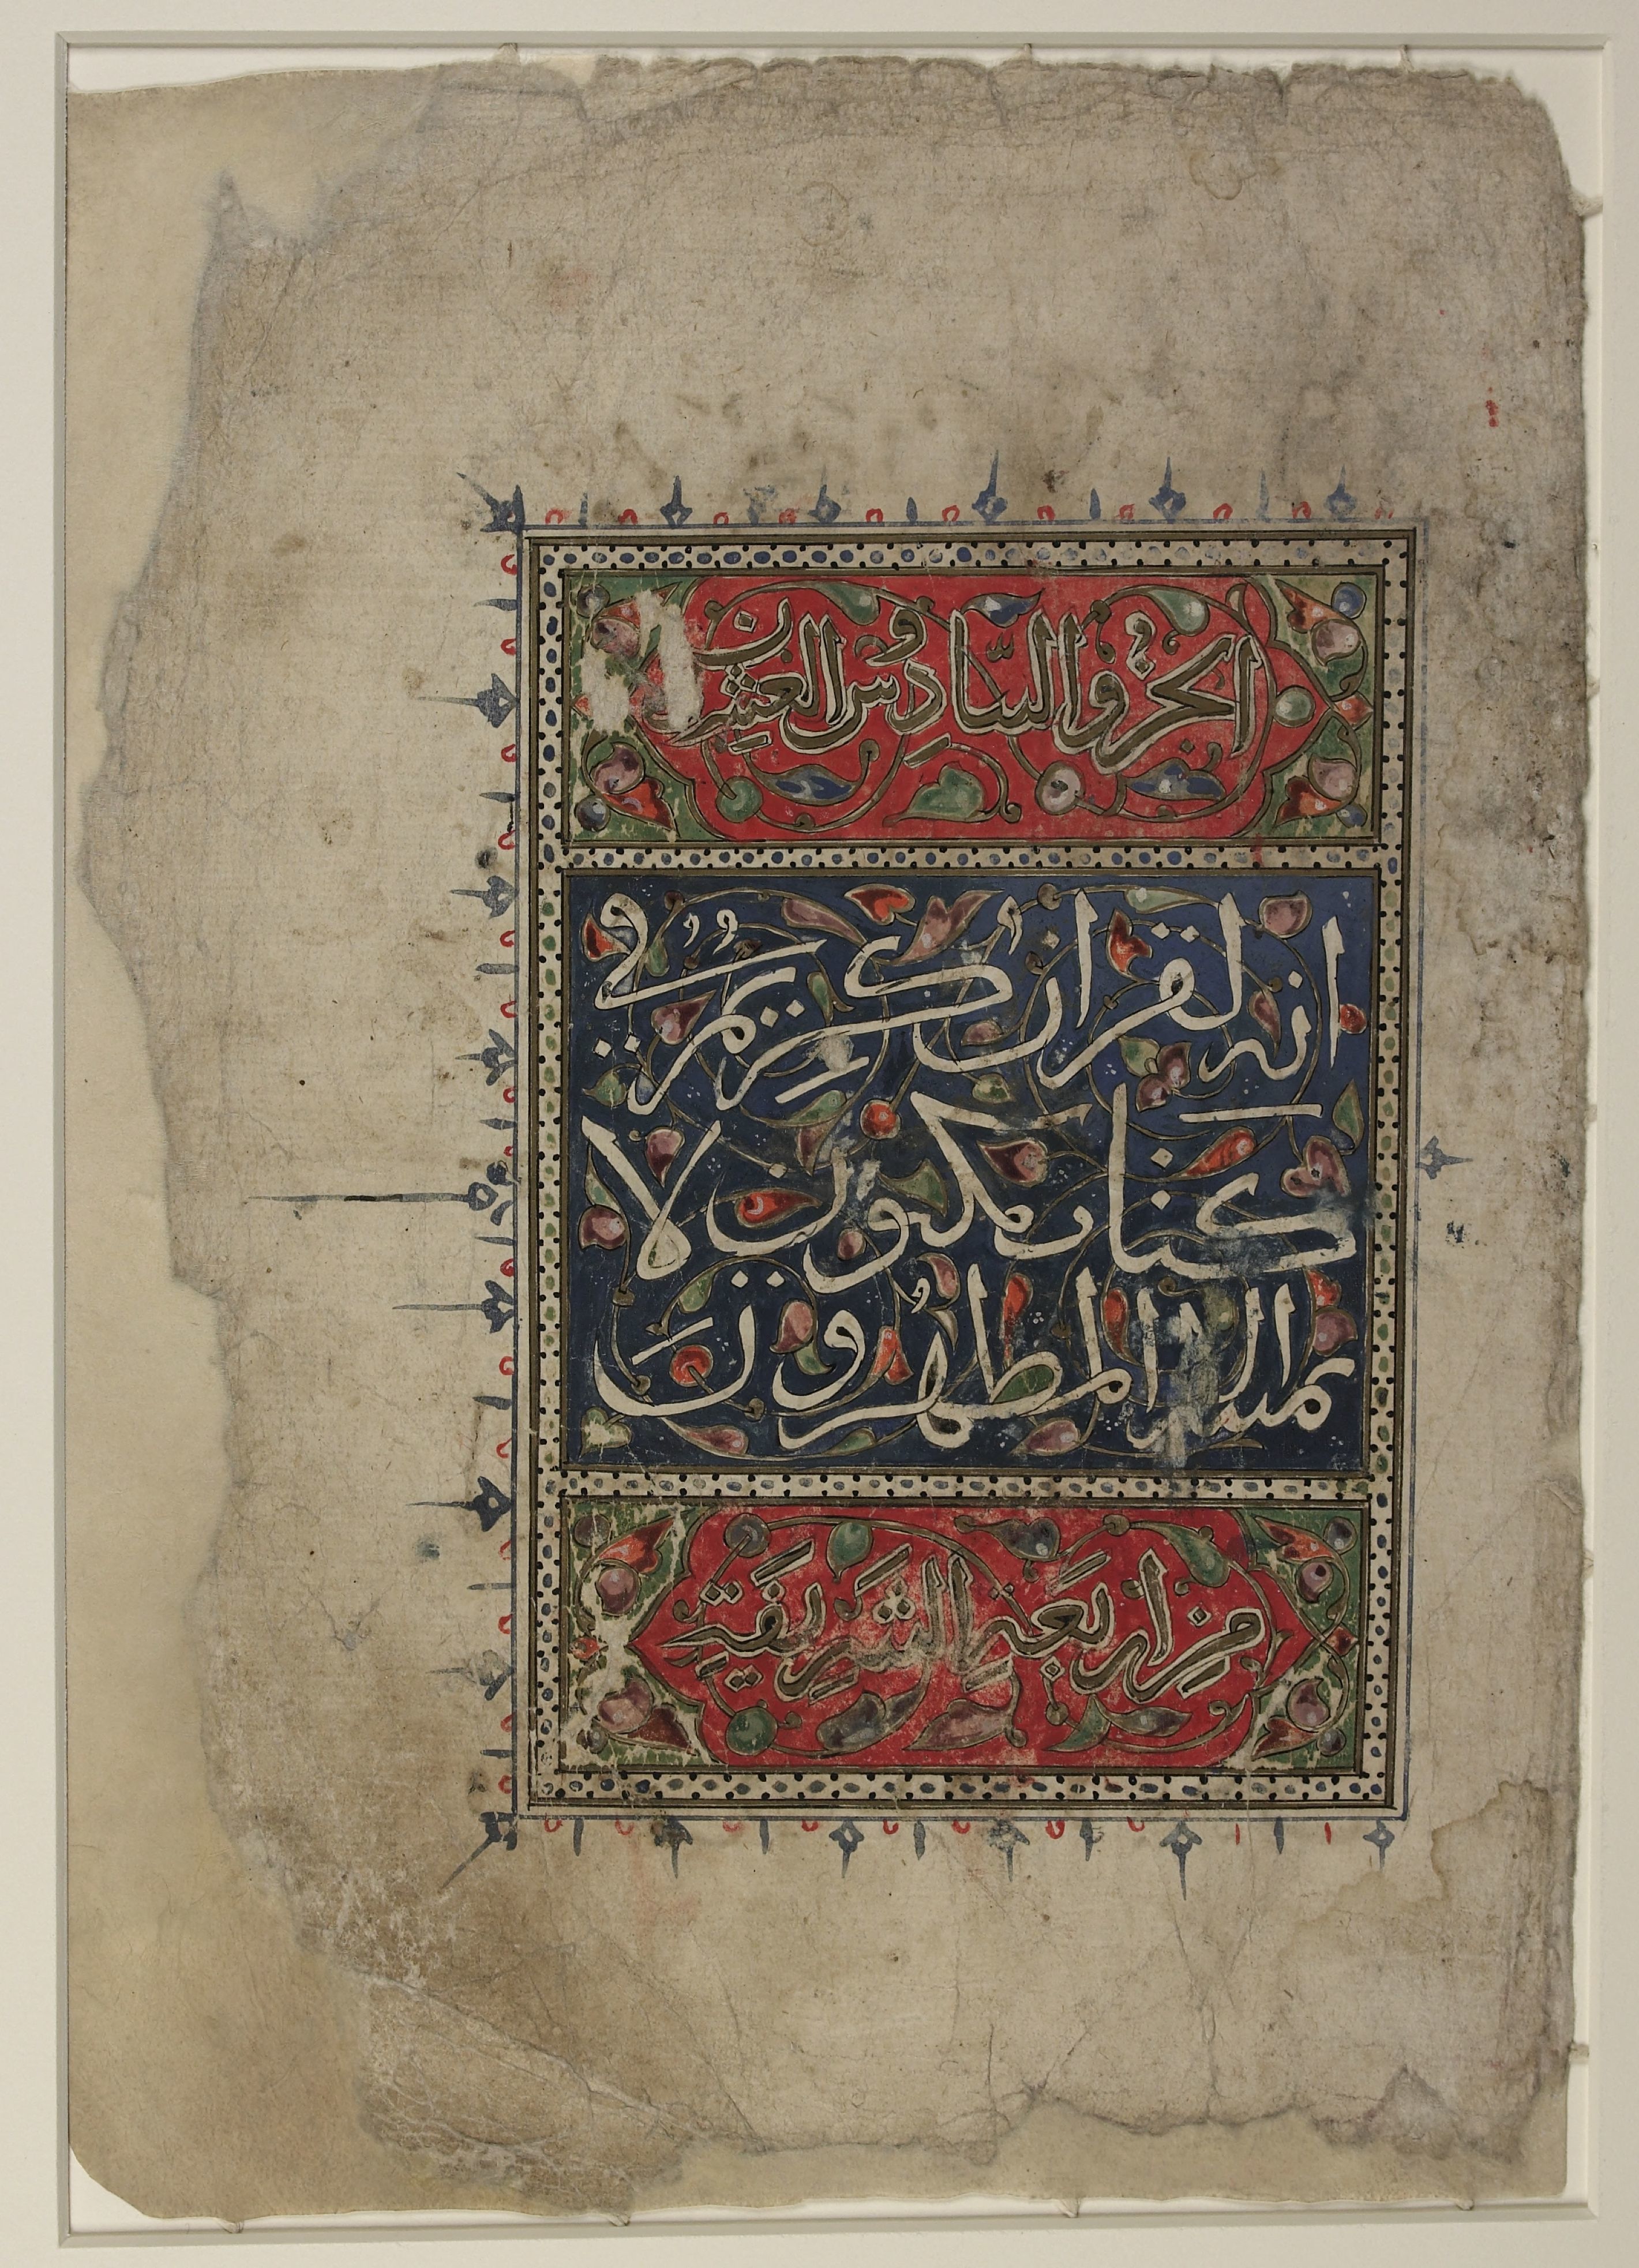 الجزو السادس والعشرون
انه لقرانٌ كريمٌ في
كتاب مكنون لا
يمسه الا المطهرون
من اربعة الشريفة